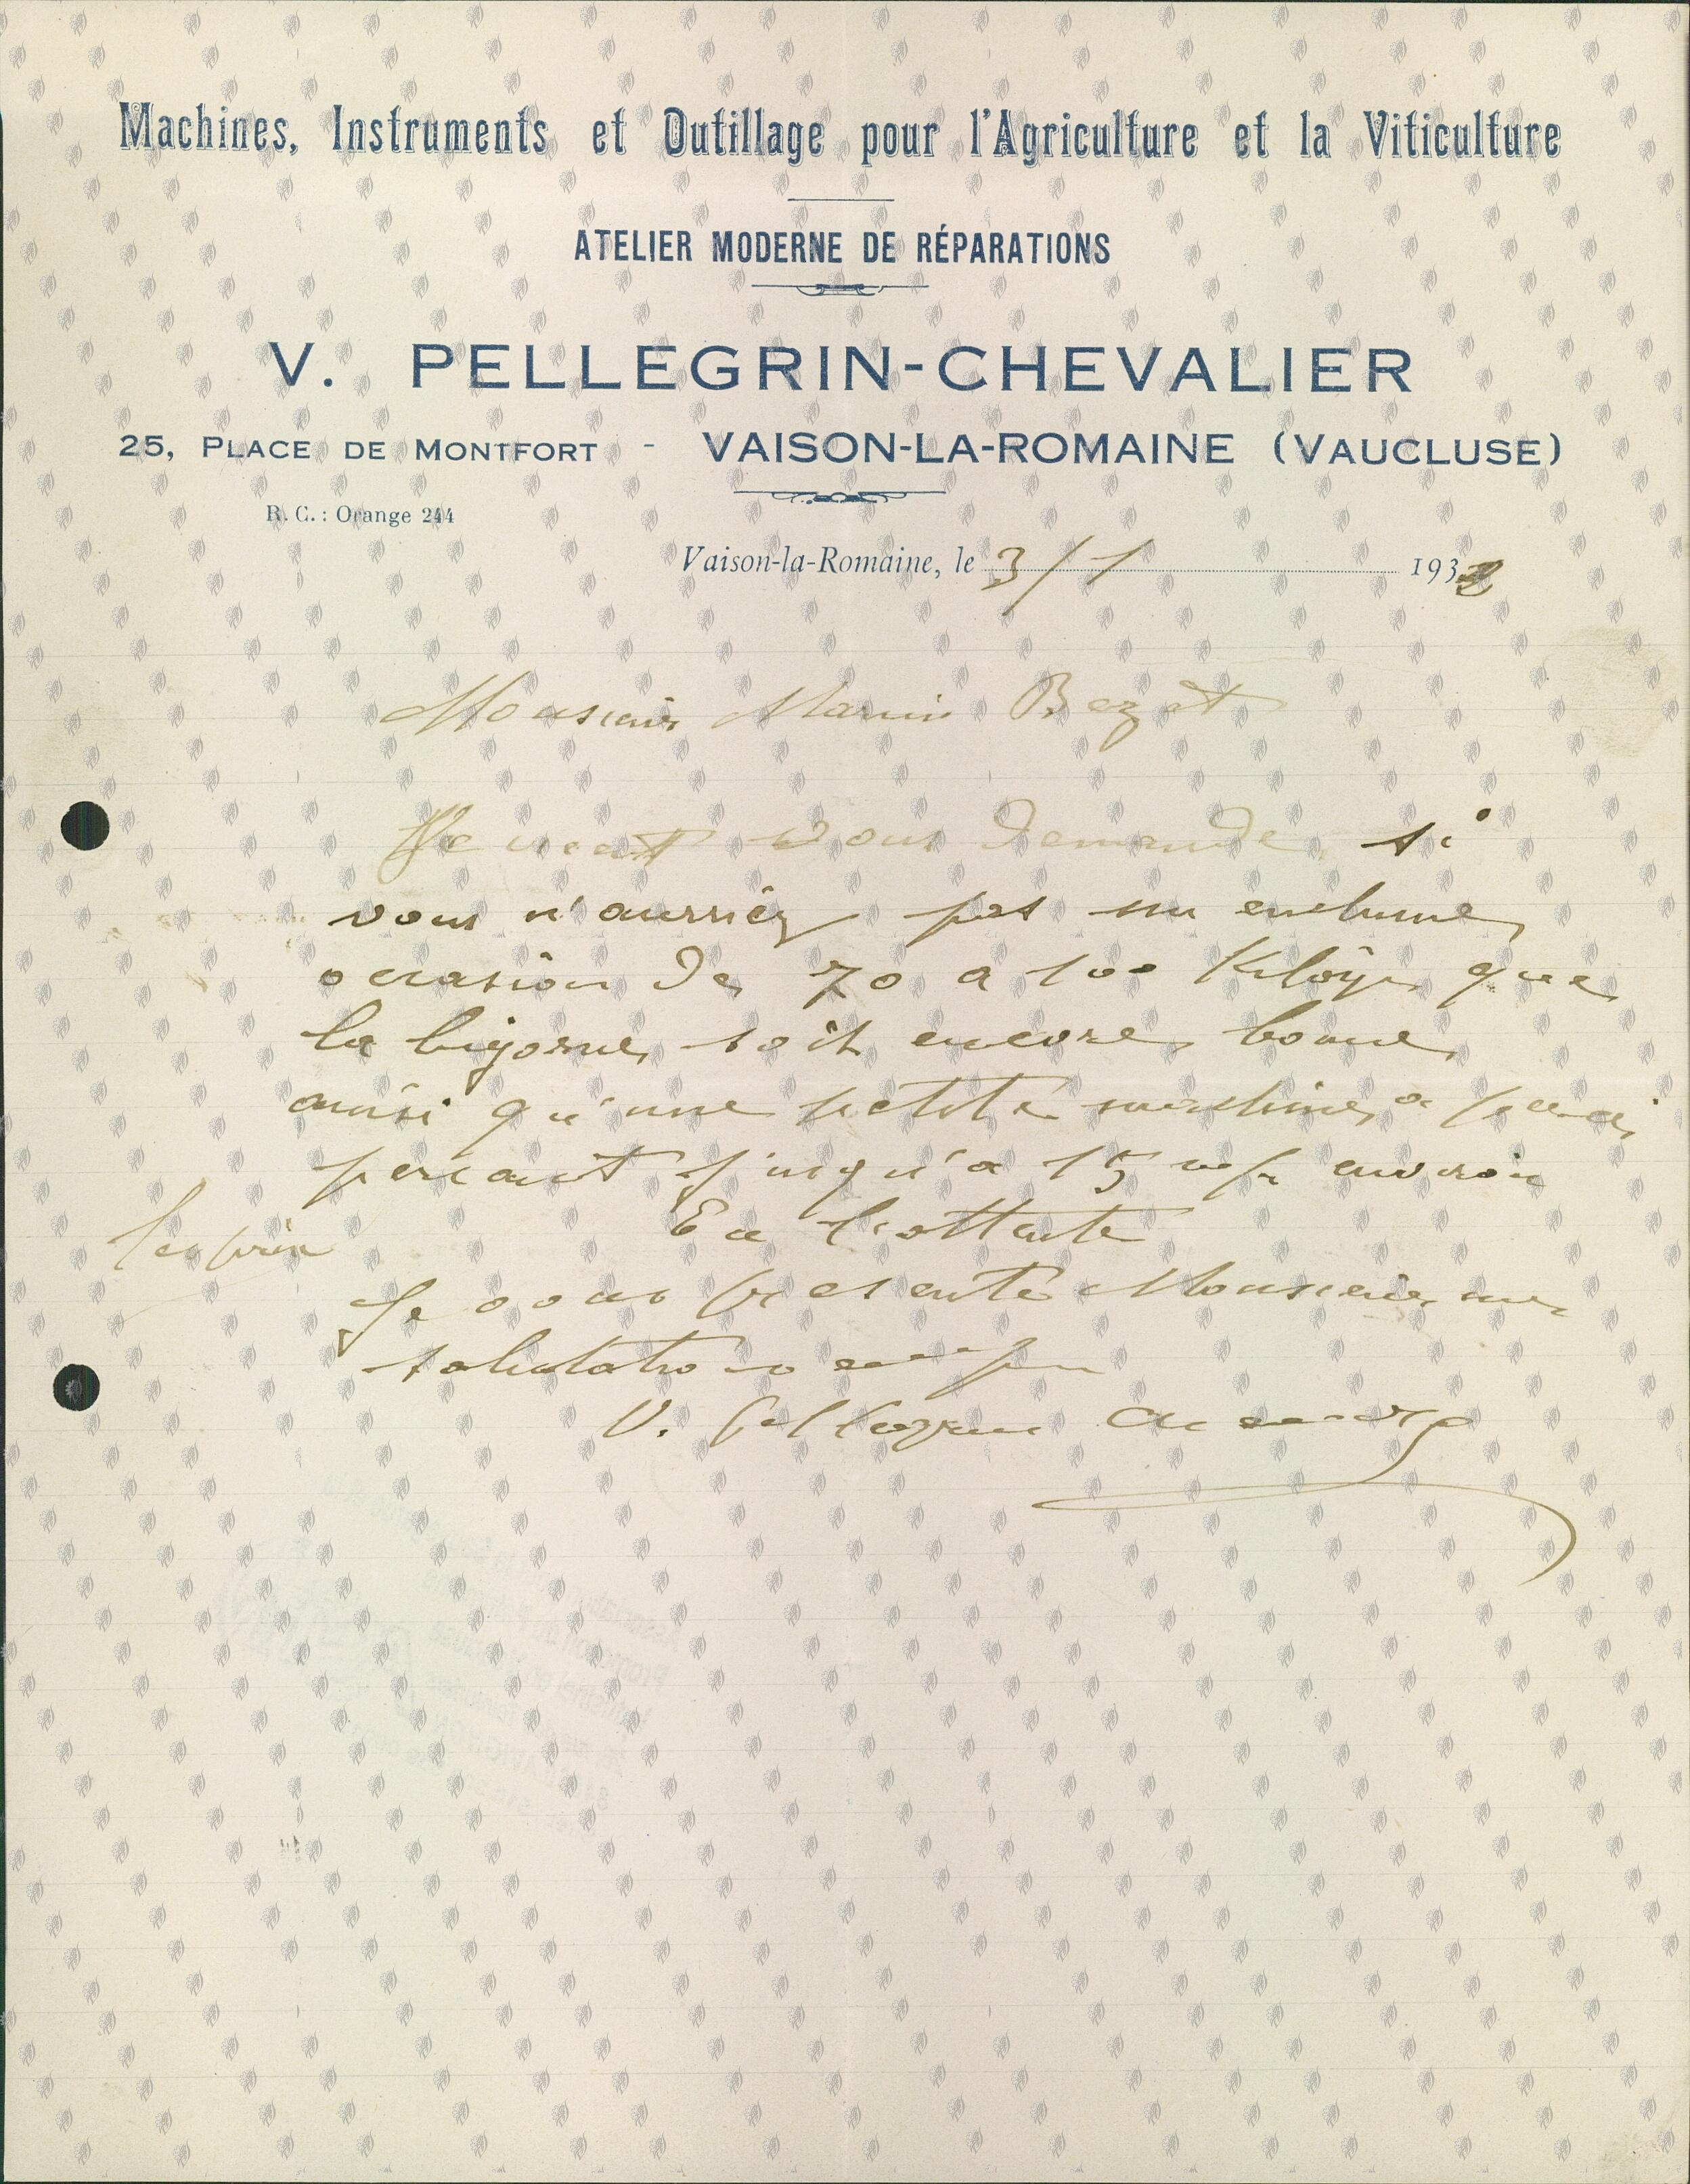 Machines, Instruments et Outillage pour l'Agriculture et la Viticulture
ATELIER MODERNE DE RÉPARATIONS
V. PELLEGRIN-CHEVALIER
25, PLACE DE MONTFORT - VAISON-LA-ROMAINE (VAUCLUSE)
R. C. : Orange 244
Vaison-la-Romaine, le 3/1 193
Monsieur Marius Bezet
Je vous demande si
vous n'aurriez pas un enclume
occasion de 70 a 100 Kilogr que
la bigorne soit encore bonne
ainsi qu'une petite machine a
percant j'usqu'a 15 m/m environ
En l'attente
les prix
Je vous presente Monsieur mes
salutations
V. Pellegrin